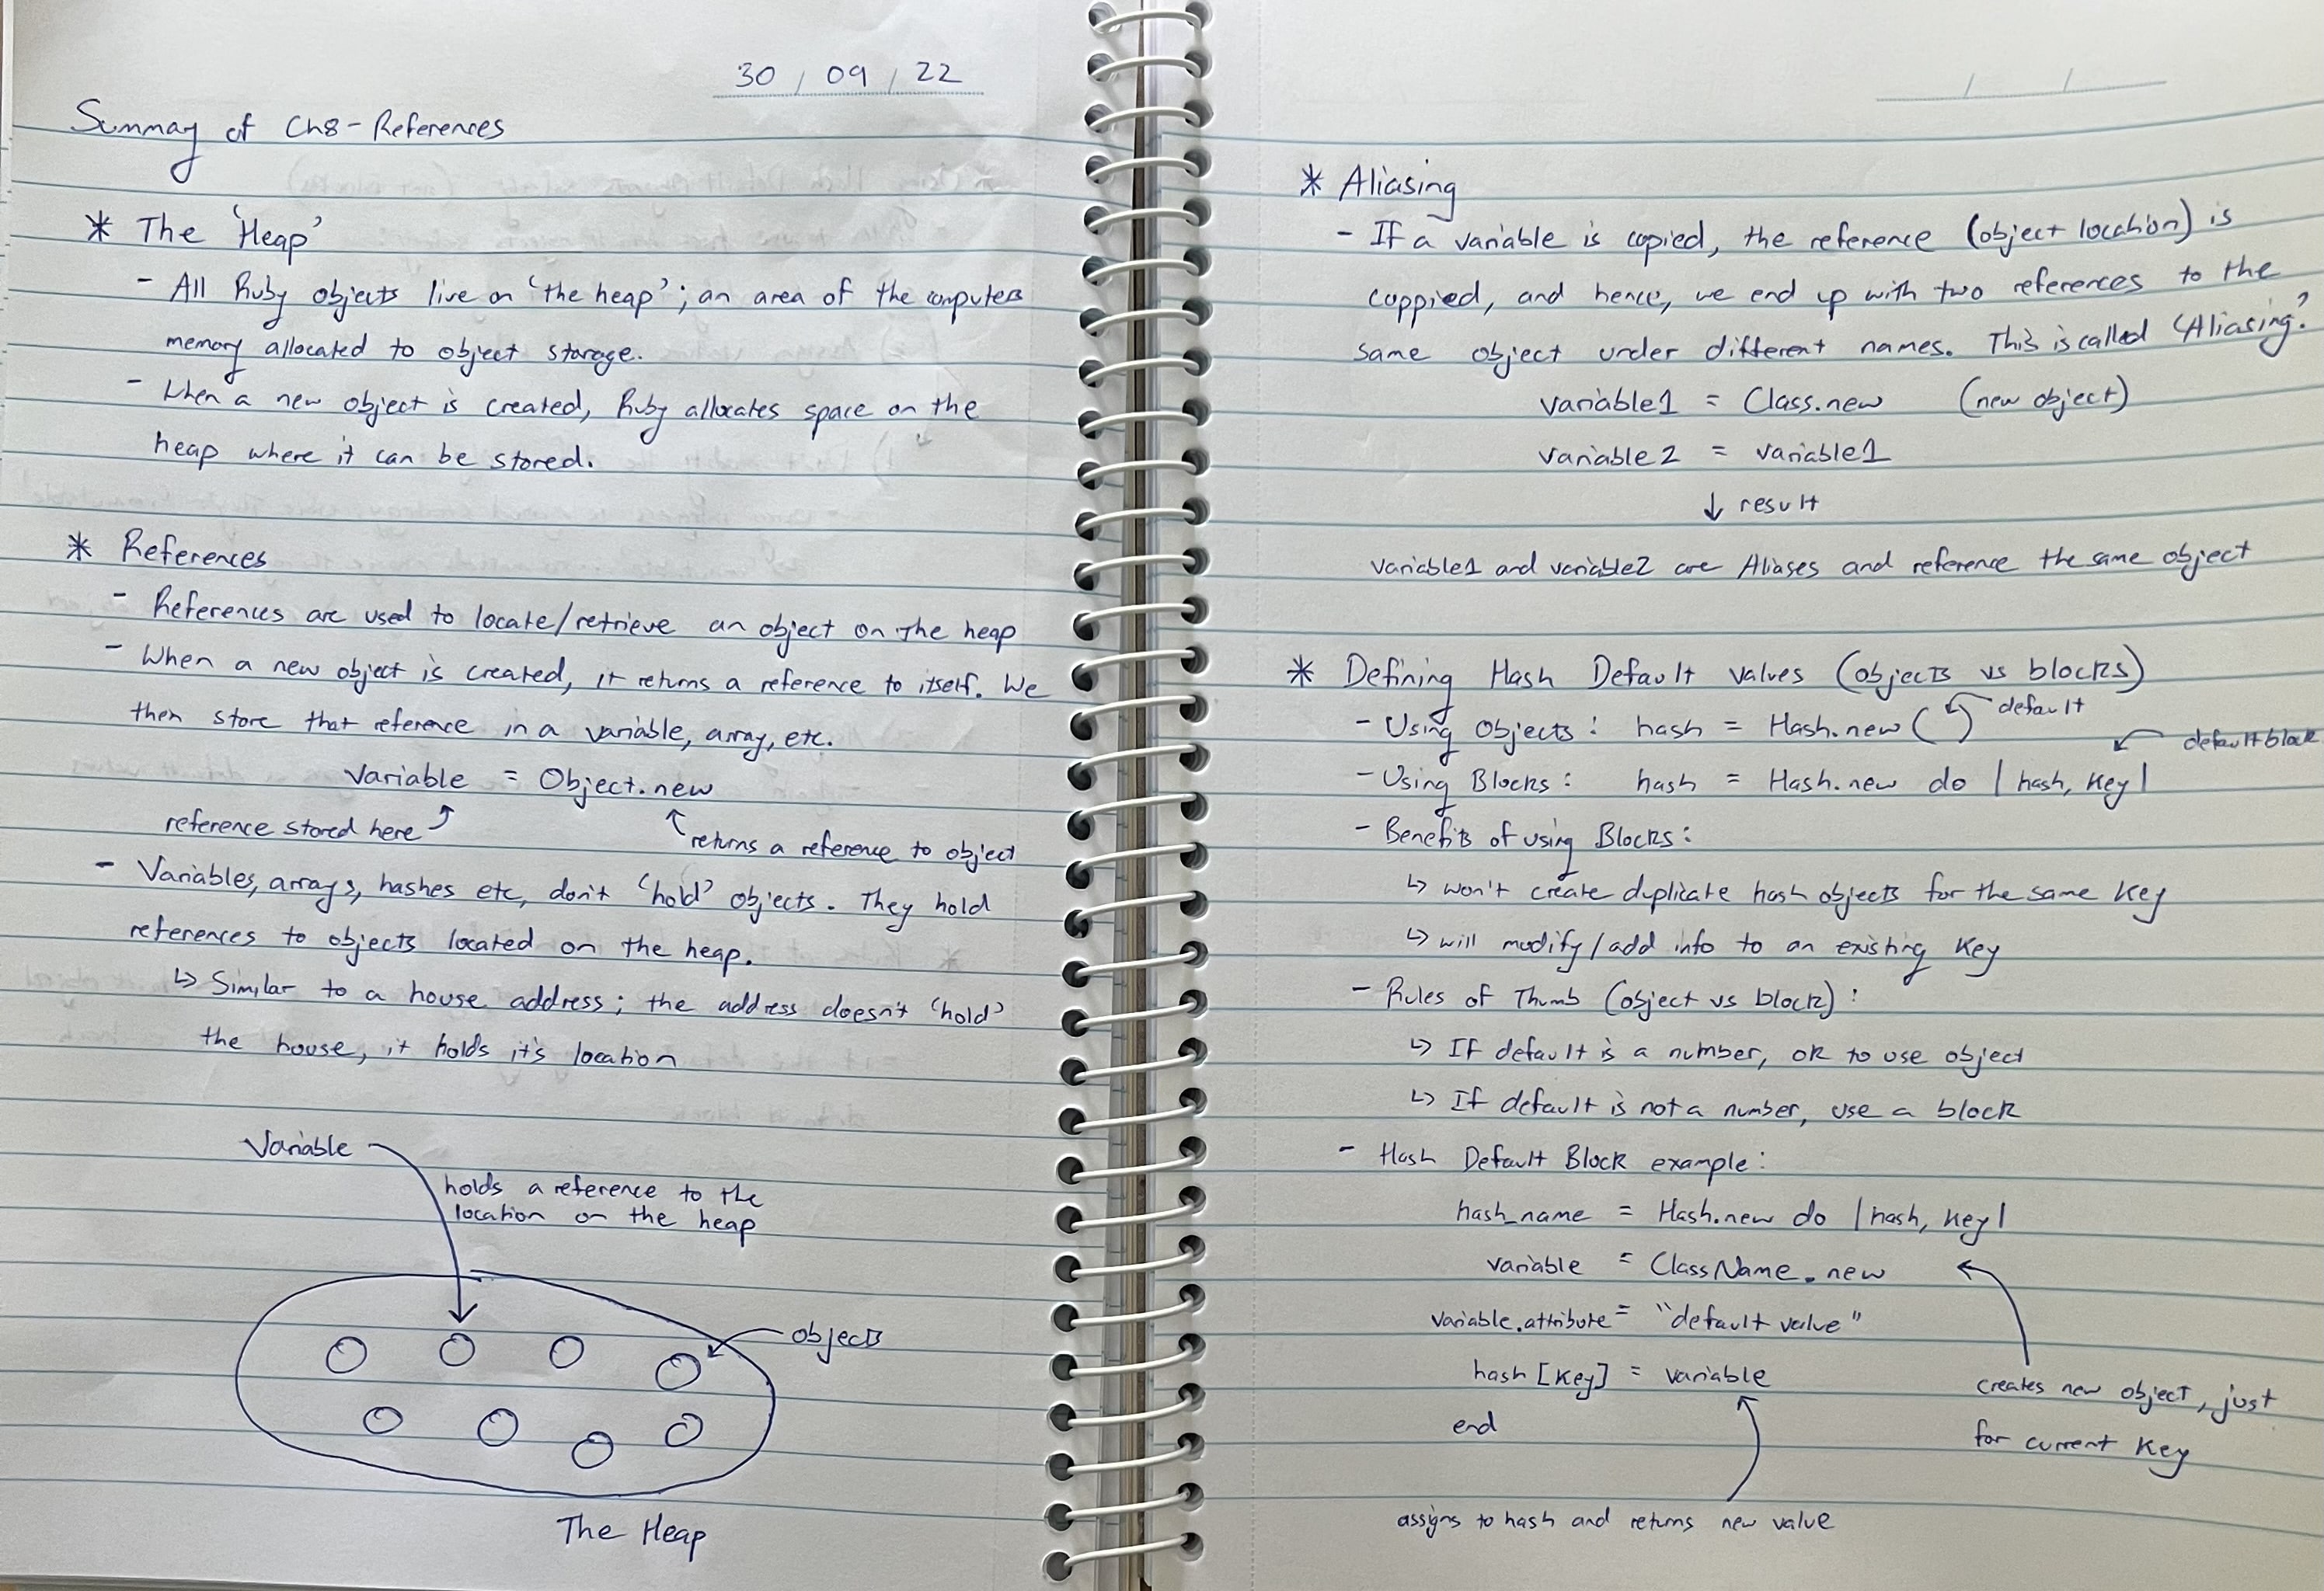 30 / 09 / 22
Summay of Ch8 - References
* The 'Heap'
- All Ruby objects live on 'the heap'; an area of the computers
memory allocated to object storage.
- When a new object is created, Ruby allocates space on the
heap where it can be stored.
* References
- References are used to locate/retrieve an object on the heap
- When a new object is created, it returns a reference to itself. We
then store that reference in a variable, array, etc.
variable = Object.new
reference stored here
returns a reference to object
- Variables, arrays, hashes etc, don't 'hold' objects. They hold
references to objects located on the heap.
↳ Similar to a house address; the address doesn't 'hold'
the house, it holds it's location
Variable
holds a reference to the
location on the heap
objects
The Heap
/ /
* Aliasing
- If a variable is copied, the reference (object location) is
coppied, and hence, we end up with two references to the
same object under different names. This is called 'Aliasing'.
variable1 = Class.new (new object)
variable2 = variable1
↓ result
variable1 and variable2 are Aliases and reference the same object
* Defining Hash Default values (objects vs blocks)
- Using Objects: hash = Hash.new ( ) default
default block
- Using Blocks: hash = Hash.new do |hash, key|
- Benefits of using Blocks:
↳ won't create duplicate hash objects for the same key
↳ will modify/add info to an existing key
- Rules of Thumb (object vs block):
↳ If default is a number, ok to use object
↳ If default is not a number, use a block
- Hash Default Block example:
hash_name = Hash.new do |hash, key|
variable = ClassName.new
variable.attribute = "default value"
hash [key] = variable
end
creates new object, just
for current key
assigns to hash and returns new value